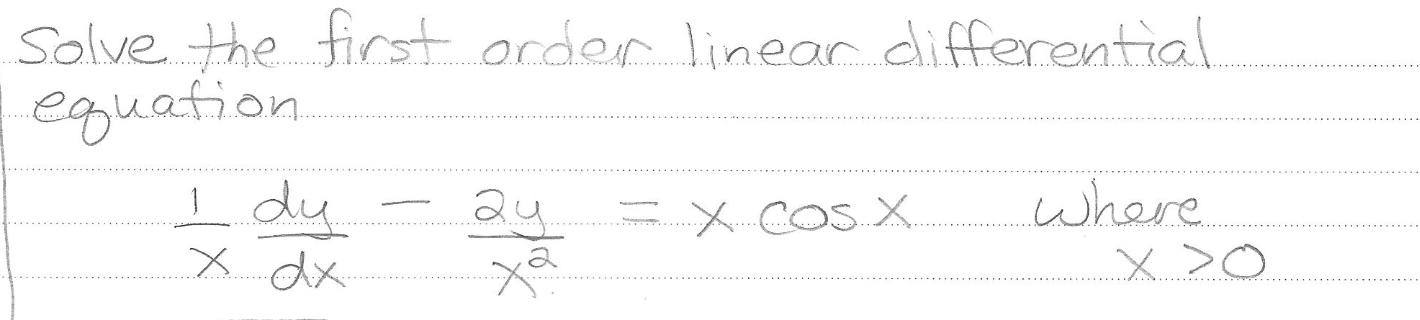 Solve the first order linear differential
equation
1/x dy/dx - 2y/x² = x cos x where
x > 0